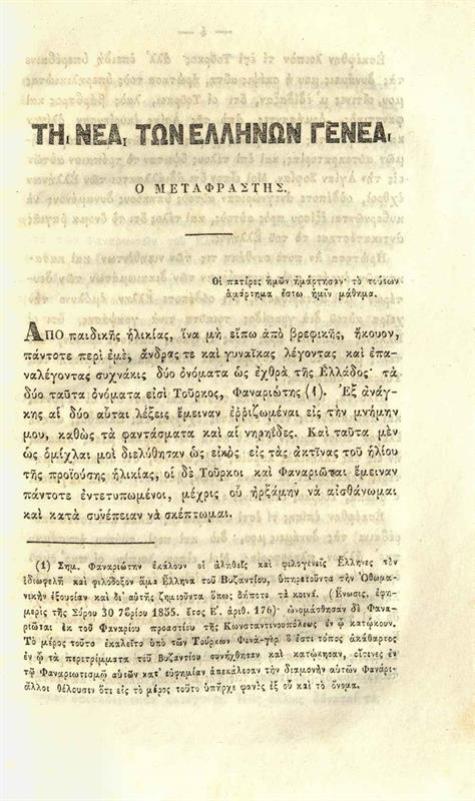 ΤΗι ΝΕΑι ΤΩΝ ΕΛΛΗΝΩΝ ΓΕΝΕΑι
Ο ΜΕΤΑΦΡΑΣΤΗΣ.
Οἱ πατέρες ἡμῶν ἡμάρτησαν· τὸ τούτων
ἁμάρτημα ἔστω ἡμῖν μάθημα.
ΑΠΟ παιδικῆς ἡλικίας, ἵνα μὴ εἴπω ἀπὸ βρεφικῆς, ἤκουον,
πάντοτε περὶ ἐμὲ, ἄνδρας τε καὶ γυναῖκας λέγοντας καὶ ἐπα-
ναλέγοντας συχνάκις δύο ὀνόματα ὡς ἐχθρὰ τῆς Ἑλλάδος· τὰ
δύο ταῦτα ὀνόματα εἰσὶ Τοῦρκος, Φαναριώτης (1). Ἐξ ἀνάγ-
κης αἱ δύο αὗται λέξεις ἔμειναν ἐῤῥιζωμέναι εἰς τὴν μνήμην
μου, καθὼς τὰ φαντάσματα καὶ αἱ νηρηΐδες. Καὶ ταῦτα μὲν
ὡς ὀμίχλαι μοὶ διελύθησαν ὡς εἰκὸς εἰς τὰς ἀκτῖνας τοῦ ἡλίου
τῆς προϊούσης ἡλικίας, οἱ δὲ Τοῦρκοι καὶ Φαναριῶται ἔμειναν
πάντοτε ἐντετυπωμένοι, μέχρις οὗ ἠρξάμην νὰ αἰσθάνωμαι
καὶ κατὰ συνέπειαν νὰ σκέπτωμαι.
(1) Σημ. Φαναριώτην ἐκάλουν οἱ ἀληθεῖς καὶ φιλογενεῖς Ἕλληνες τὸν
ἰδιωφελῆ καὶ φιλόδοξον ἅμα Ἕλληνα τοῦ Βυζαντίου, ὑπηρετοῦντα τὴν Ὀθωμα-
νικὴν ἐξουσίαν καὶ δι' αὐτῆς ζημιοῦντα ὅπως δήποτε τὰ κοινά. (Ἕνωσις, ἐφη-
μερὶς τῆς Σύρου 30 7βρίου 1855. ἔτος Ε΄. ἀριθ. 176)· ὠνομάσθησαν δὲ Φανα-
ριῶται ἐκ τοῦ Φαναρίου προαστίου τῆς Κωνσταντινουπόλεως ἐν ᾧ κατῴκουν.
Τὸ μέρος τοῦτο ἐκαλεῖτο ὑπὸ τῶν Τούρκων Φενὰ-γὲρ ὅ ἐστι τόπος ἀκάθαρτος
ἐν ᾧ τὰ περιτρίμματα τοῦ Βυζαντίου συνήχθησαν καὶ κατῴκησαν, οἵτινες ἐν
τῷ Φαναριωτισμῷ αὐτῶν κατ' εὐφημίαν ἀπεκάλεσαν τὴν διαμονὴν αὐτῶν Φανάρι-
ἄλλοι θέλουσιν ὅτι εἰς τὸ μέρος τοῦτο ὑπῆρχε φανὸς ἐξ οὗ καὶ τὸ ὄνομα.